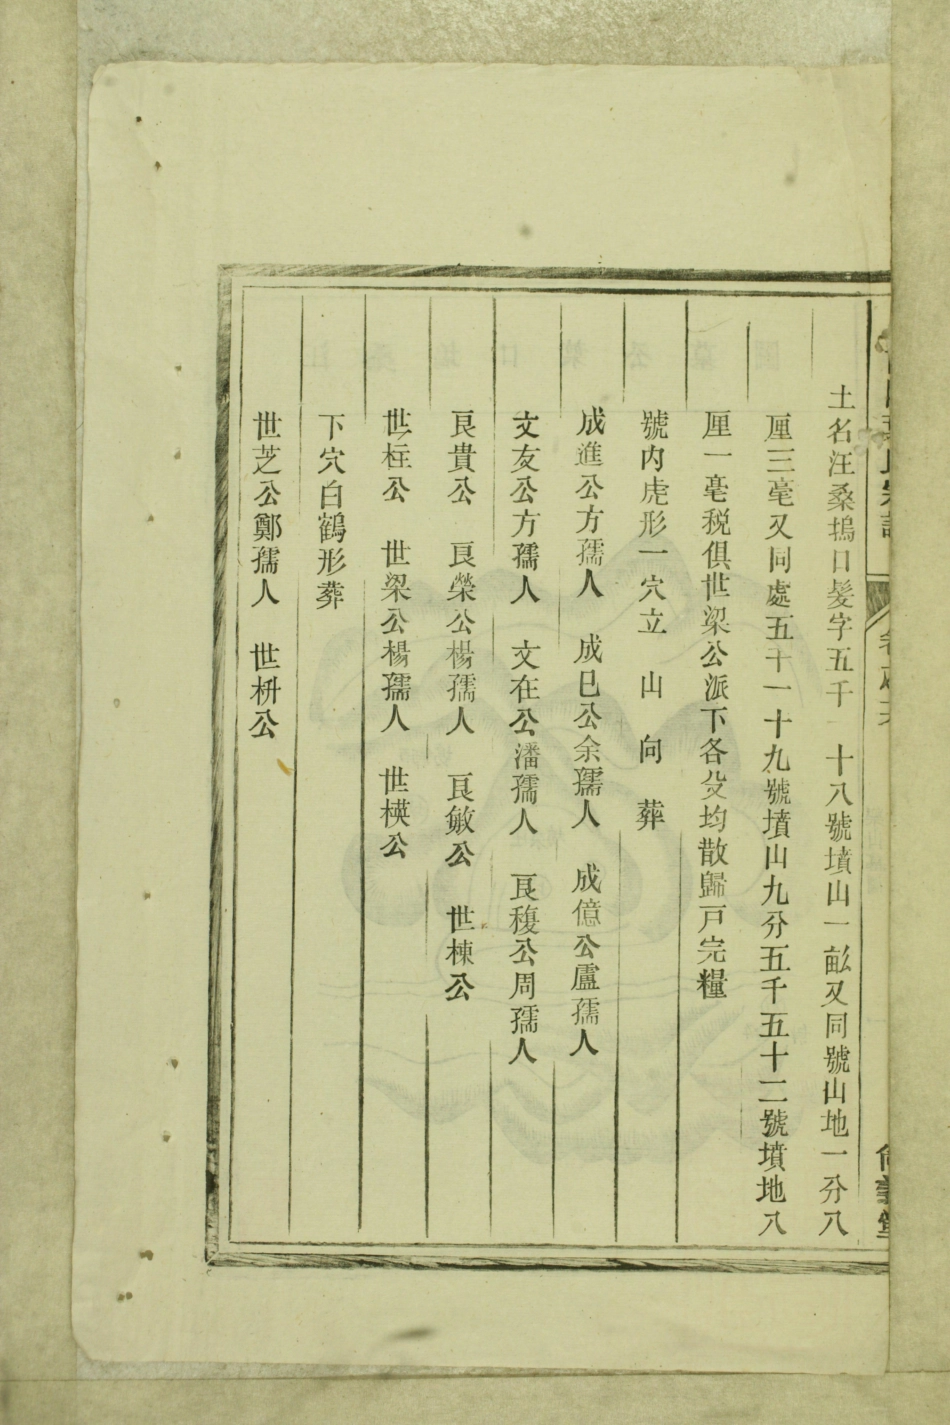 土名汪桑塢口髮字五千一十八號墳山一畝又同號山地一分八
厘三毫又同處五十一十九號墳山九分五千五十二號墳地八
厘一毫税俱世梁公派下各殳均散歸戸完糧
號内虎形一穴立　山　向　葬
成進公方孺人　成巳公余孺人　成億公盧孺人
文友公方孺人　文在公潘孺人　良稪公周孺人
良貴公　良榮公楊孺人　良敏公　世棟公
世枉公　世梁公楊孺人　世模公
下穴白鶴形葬
世芝公鄭孺人　世枡公